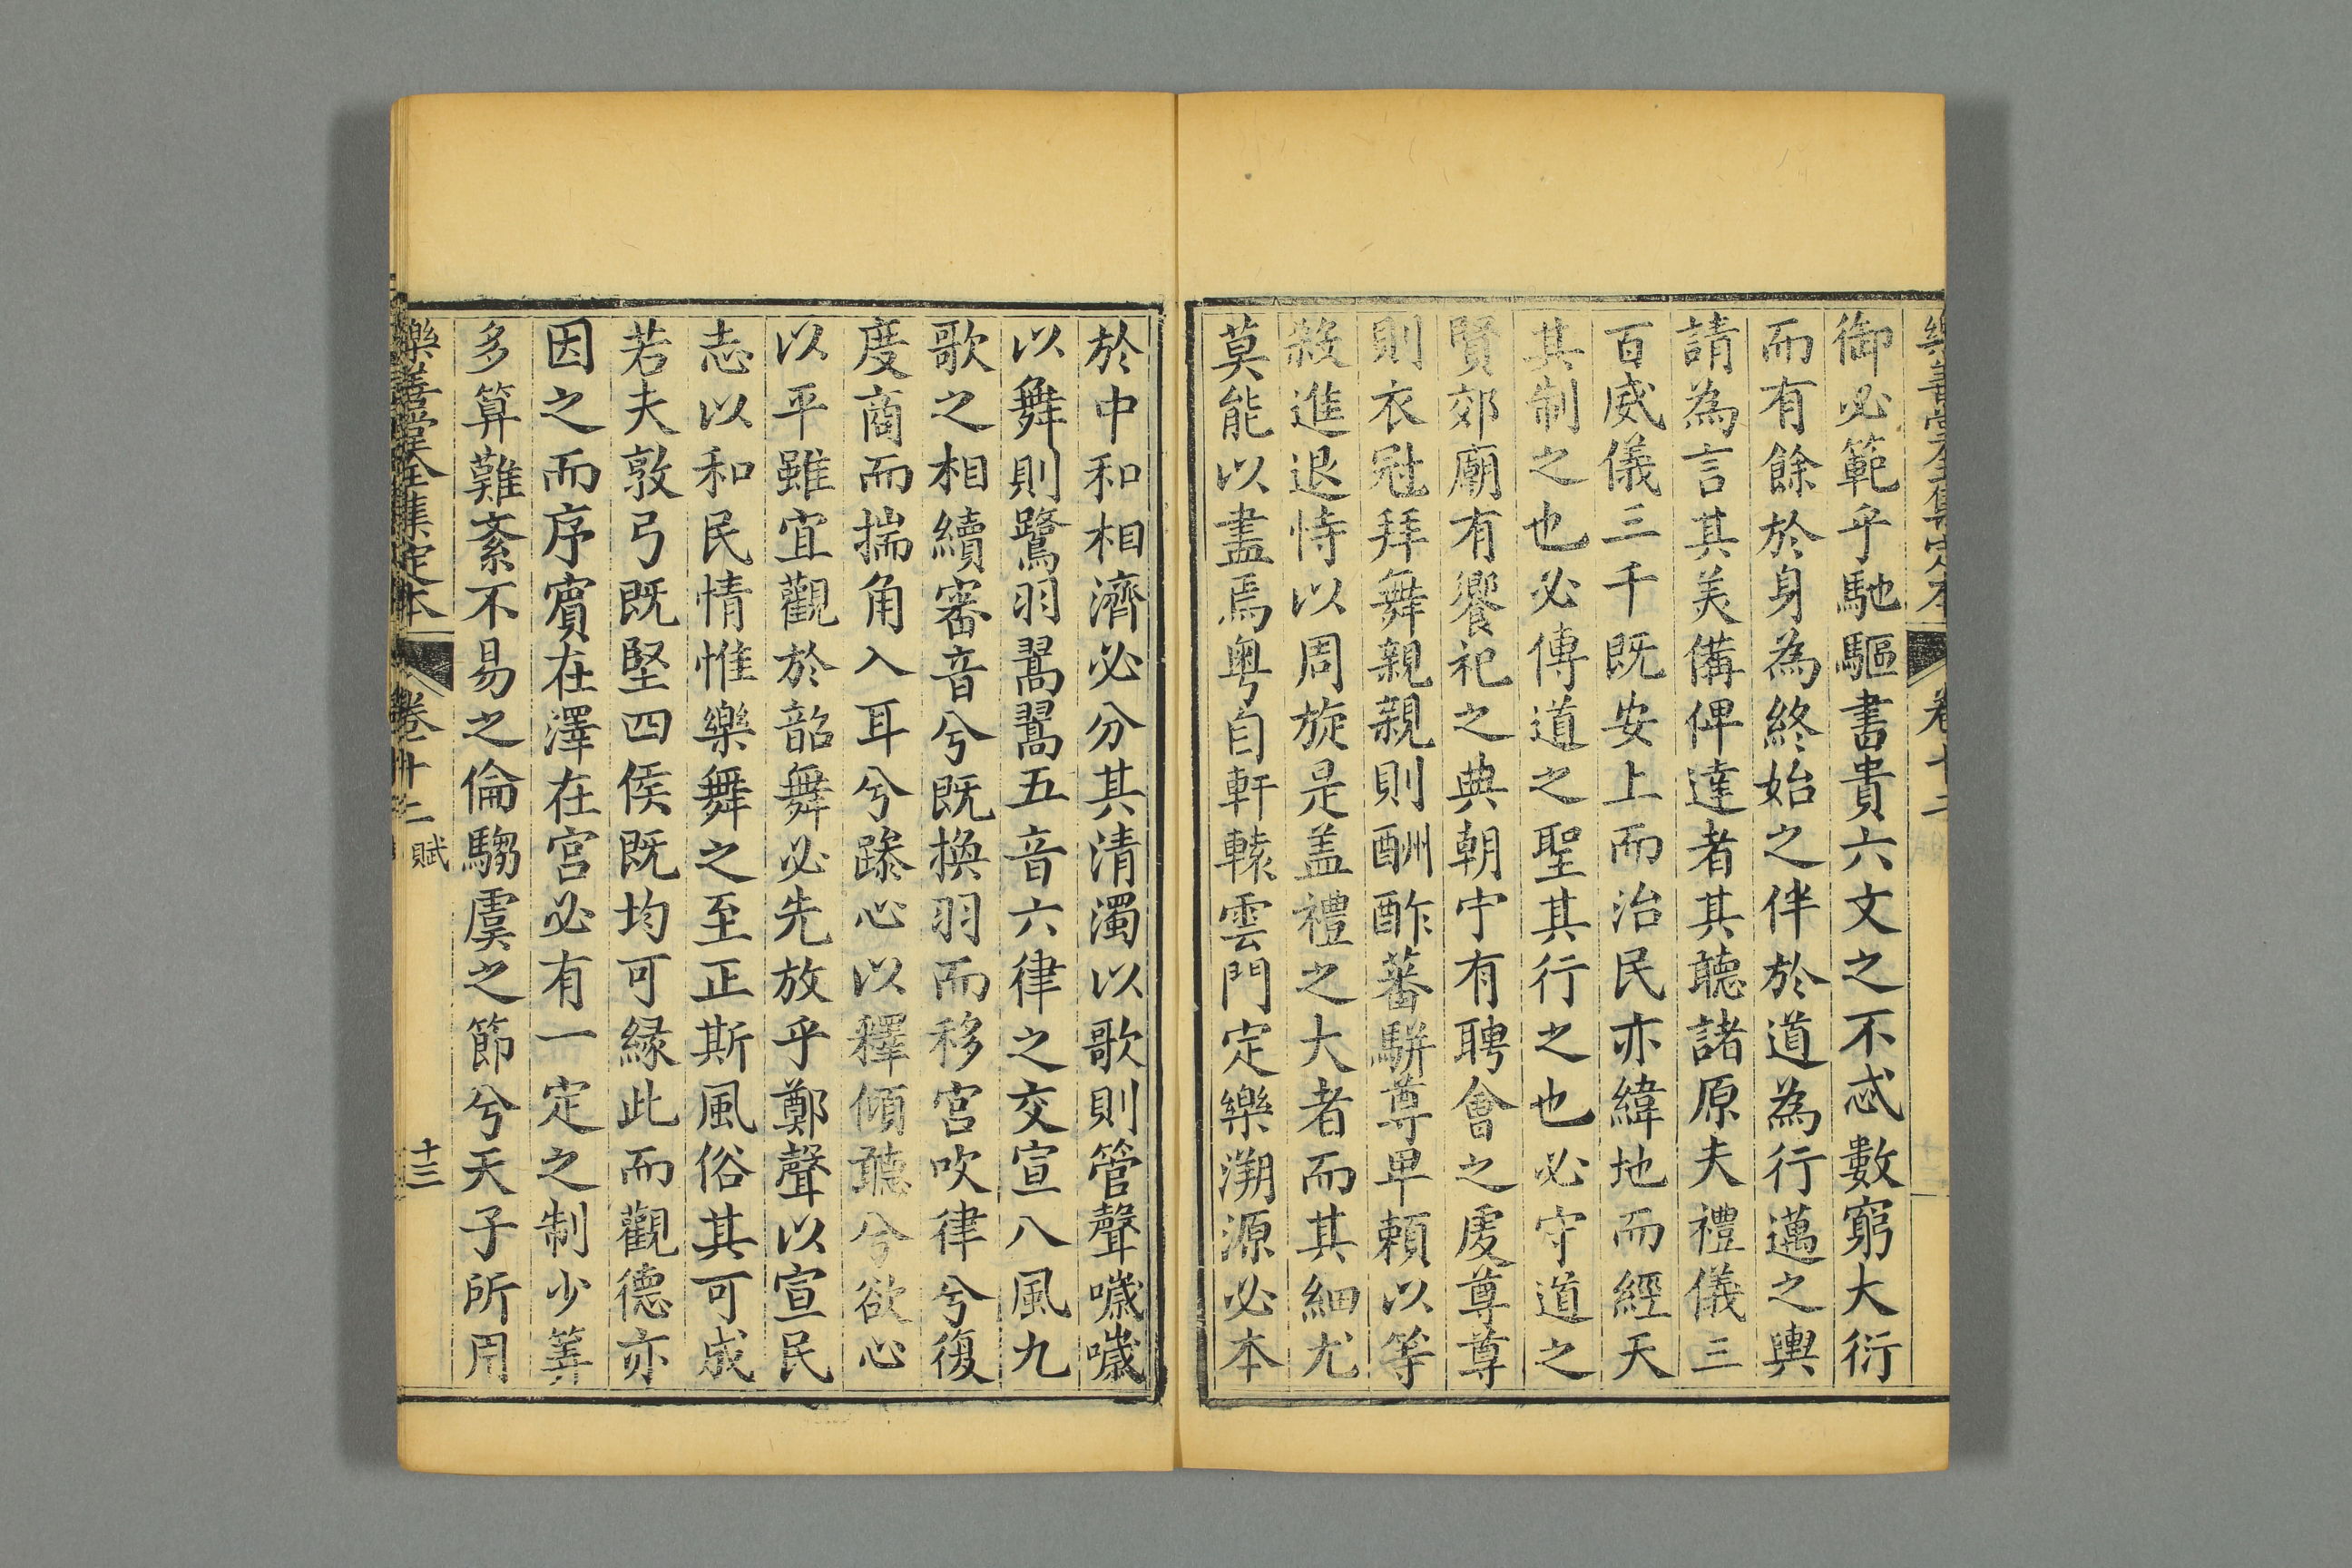 樂善堂全集定本 卷十二
御必範乎馳驅書貴六文之不忒數窮大衍
而有餘於身為終始之伴於道為行邁之輿
請為言其美備俾達者其聽諸原夫禮儀三
百威儀三千既安上而治民亦緯地而經天
其制之也必傳道之聖其行之也必守道之
賢郊廟有饗祀之典朝中有聘會之處尊尊
則衣冠拜舞親親則酬酢蕃駢尊卑賴以等
殺進退恃以周旋是盖禮之大者而其細尤
莫能以盡焉粤自軒轅雲門定樂溯源必本
於中和相濟必分其清濁以歌則管聲噦噦
以舞則鷺羽翯翯五音六律之交宣八風九
歌之相續審音兮既換羽而移宮吹律兮復
度商而揣角入耳兮躁心以釋傾聽兮欲心
以平雖宜觀於韶舞必先放乎鄭聲以宣民
志以和民情惟樂舞之至正斯風俗其可成
若夫敦弓既堅四鍭既均可緣此而觀德亦
因之而序賓在澤在宮必有一定之制少筭
多算難紊不易之倫騶虞之節兮天子所用
樂善堂全集定本 卷十二 賦 十三